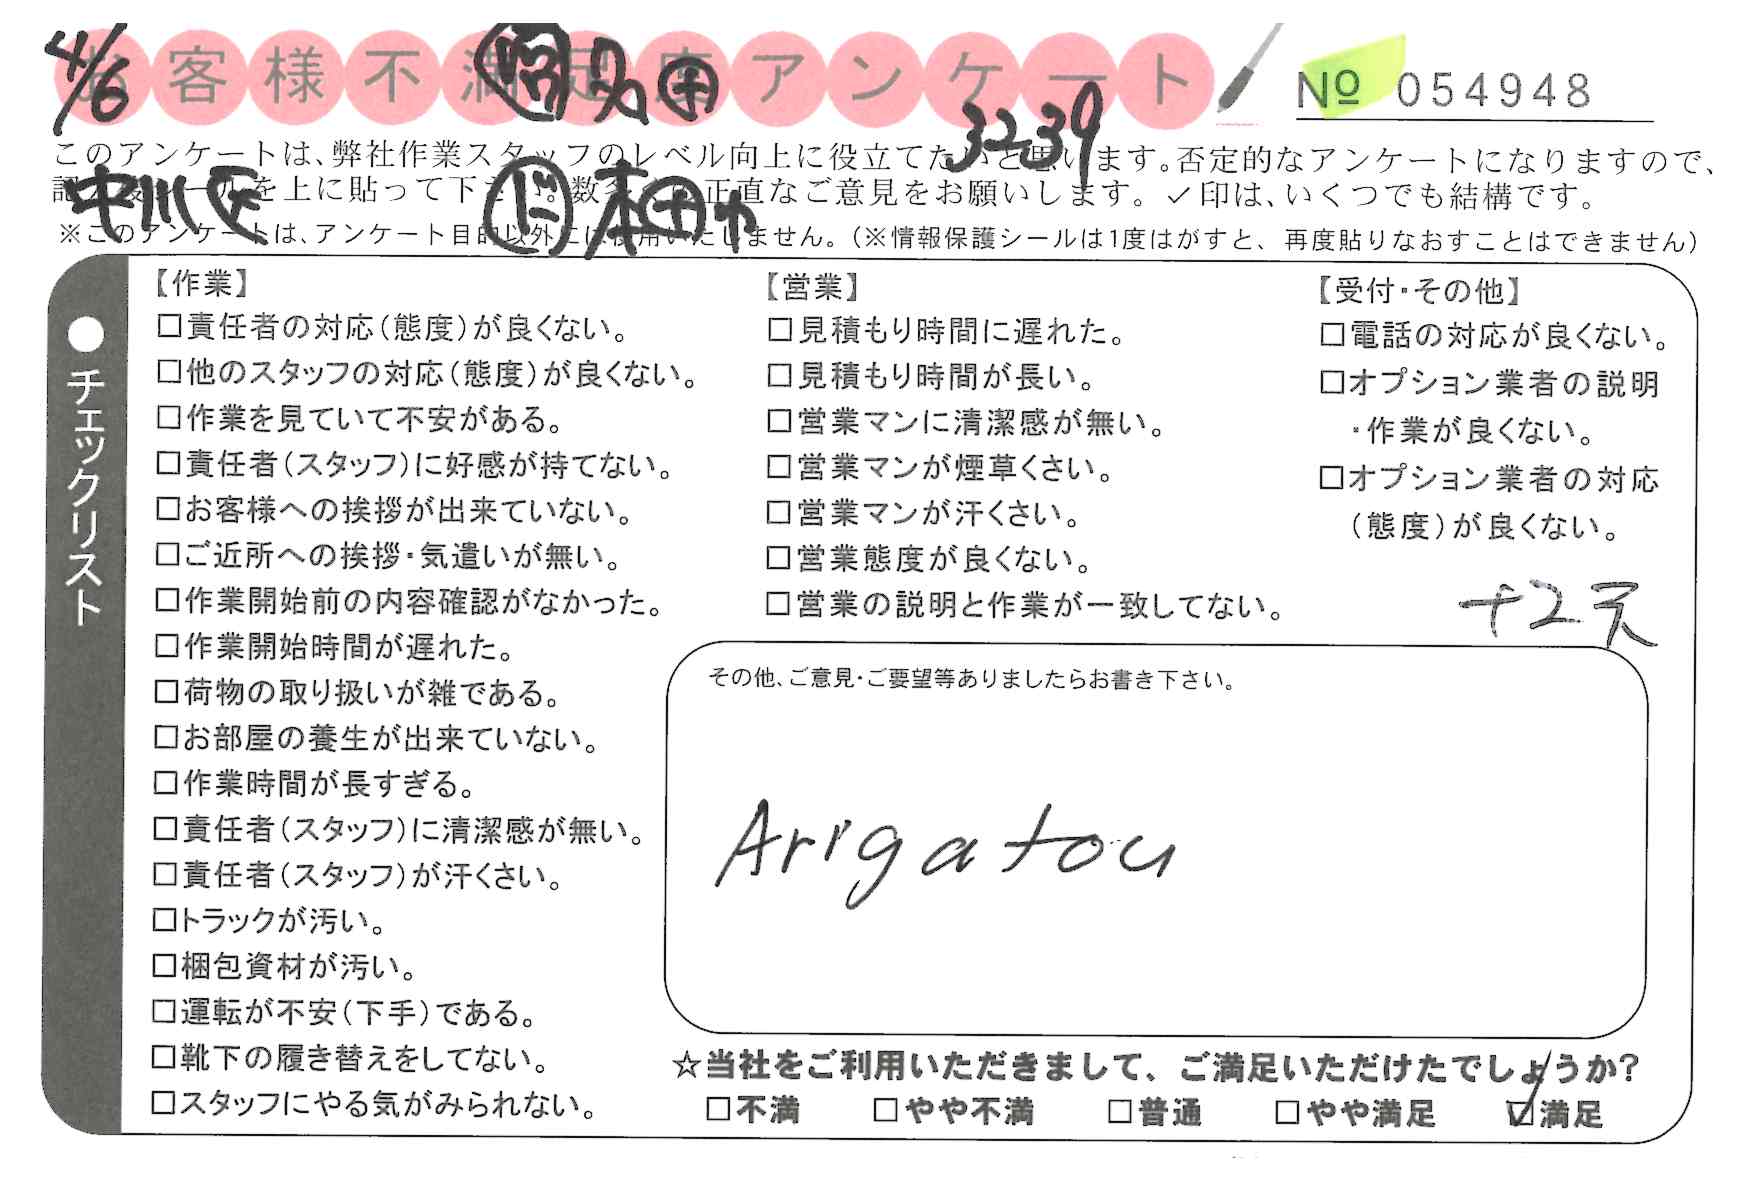 4/6
お客様不満足度アンケート
No 054948
3239
このアンケートは、弊社作業スタッフのレベル向上に役立てたいと思います。否定的なアンケートになりますので、
記入後シールを上に貼って下さい。数名 正直なご意見をお願いします。✓印は、いくつでも結構です。
中川区
本田
※このアンケートは、アンケート目的以外には使用いたしません。（※情報保護シールは1度はがすと、再度貼りなおすことはできません）
●チェックリスト
【作業】
□責任者の対応（態度）が良くない。
□他のスタッフの対応（態度）が良くない。
□作業を見ていて不安がある。
□責任者（スタッフ）に好感が持てない。
□お客様への挨拶が出来ていない。
□ご近所への挨拶・気遣いが無い。
□作業開始前の内容確認がなかった。
□作業開始時間が遅れた。
□荷物の取り扱いが雑である。
□お部屋の養生が出来ていない。
□作業時間が長すぎる。
□責任者（スタッフ）に清潔感が無い。
□責任者（スタッフ）が汗くさい。
□トラックが汚い。
□梱包資材が汚い。
□運転が不安（下手）である。
□靴下の履き替えをしてない。
□スタッフにやる気がみられない。
【営業】
□見積もり時間に遅れた。
□見積もり時間が長い。
□営業マンに清潔感が無い。
□営業マンが煙草くさい。
□営業マンが汗くさい。
□営業態度が良くない。
□営業の説明と作業が一致してない。
【受付・その他】
□電話の対応が良くない。
□オプション業者の説明
・作業が良くない。
□オプション業者の対応
（態度）が良くない。
その他、ご意見・ご要望等ありましたらお書き下さい。
Arigatou
☆当社をご利用いただきまして、ご満足いただけたでしょうか?
□不満 □やや不満 □普通 □やや満足 ☑満足